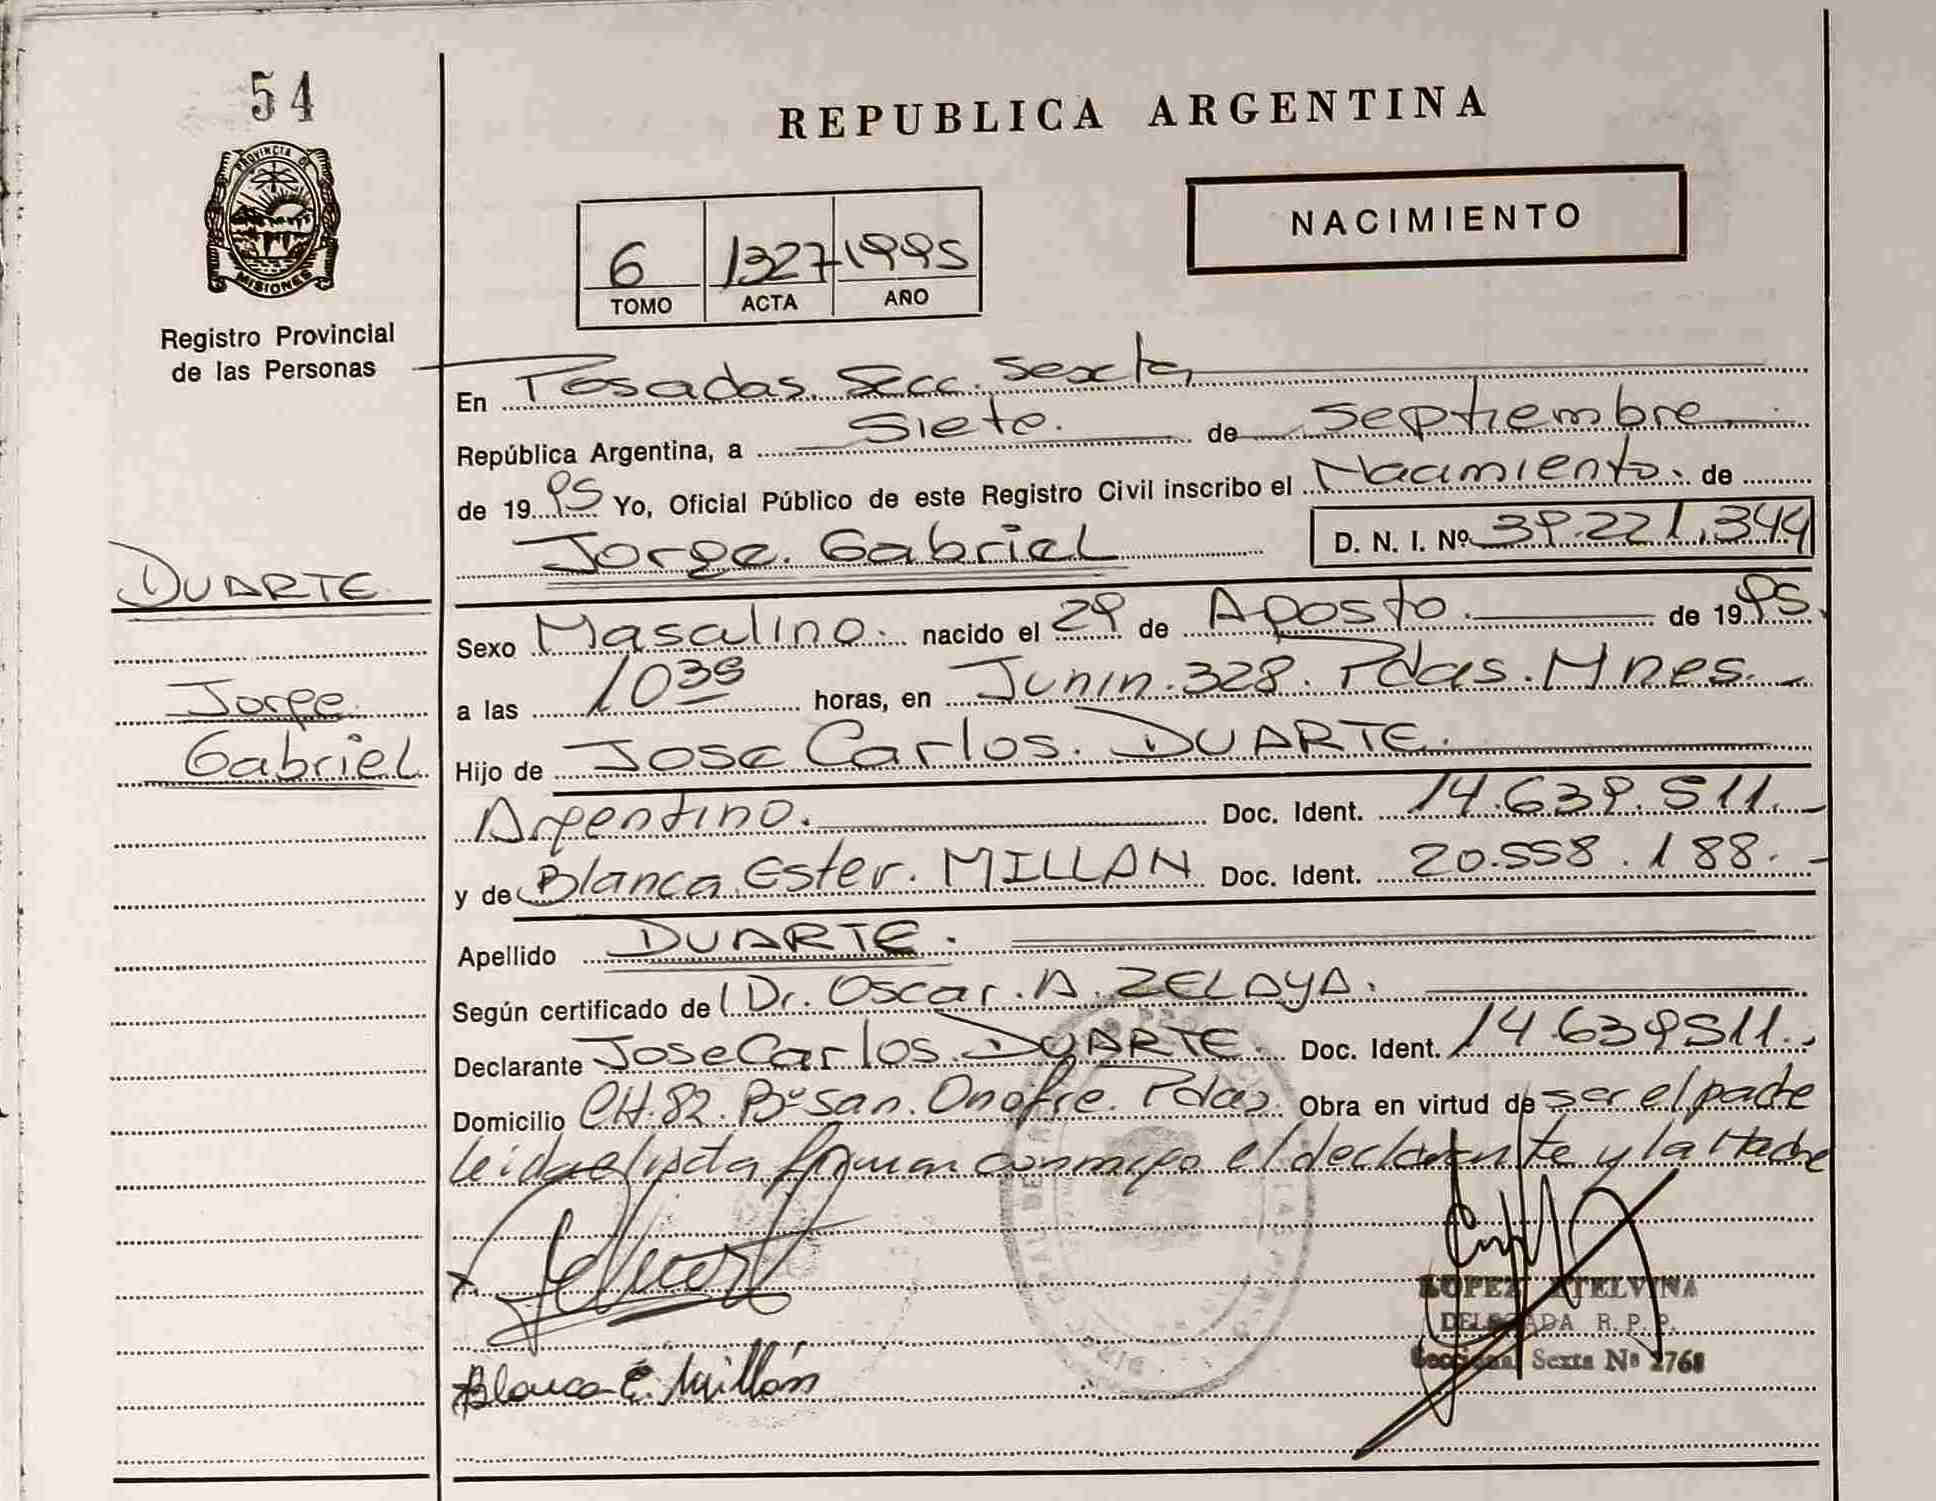 54
PROVINCIA DE
MISIONES
Registro Provincial
de las Personas
DUARTE
Jorge
Gabriel
REPUBLICA ARGENTINA
NACIMIENTO
6 1327 1995
TOMO ACTA AÑO
En Posadas. Secc. Sexta
República Argentina, a Siete. de septiembre
de 1995 Yo, Oficial Público de este Registro Civil inscribo el Nacimiento. de
Jorge. Gabriel D. N. I. Nº 39.221.344
Sexo Masculino. nacido el 29 de Agosto. de 1995.
a las 10 35 horas, en Junin. 328. Pdas. Mnes.
Hijo de Jose Carlos. DUARTE.
Argentino. Doc. Ident. 14.639.511.
y de Blanca Ester. MILLAN Doc. Ident. 20.558.188.
Apellido DUARTE.
Según certificado de Dr. Oscar. A. ZELAYA.
Declarante Jose Carlos. DUARTE. Doc. Ident. 14.639511.
Domicilio CH. 82. Bº San. Onofre. Pdas. Obra en virtud de ser el padre
leida el acta firman conmigo el declarante y la Madre
LOPEZ ETELVINA
DELEGADA R. P. P.
Seccional Sexta Nº 2768
Blanca E. Millán